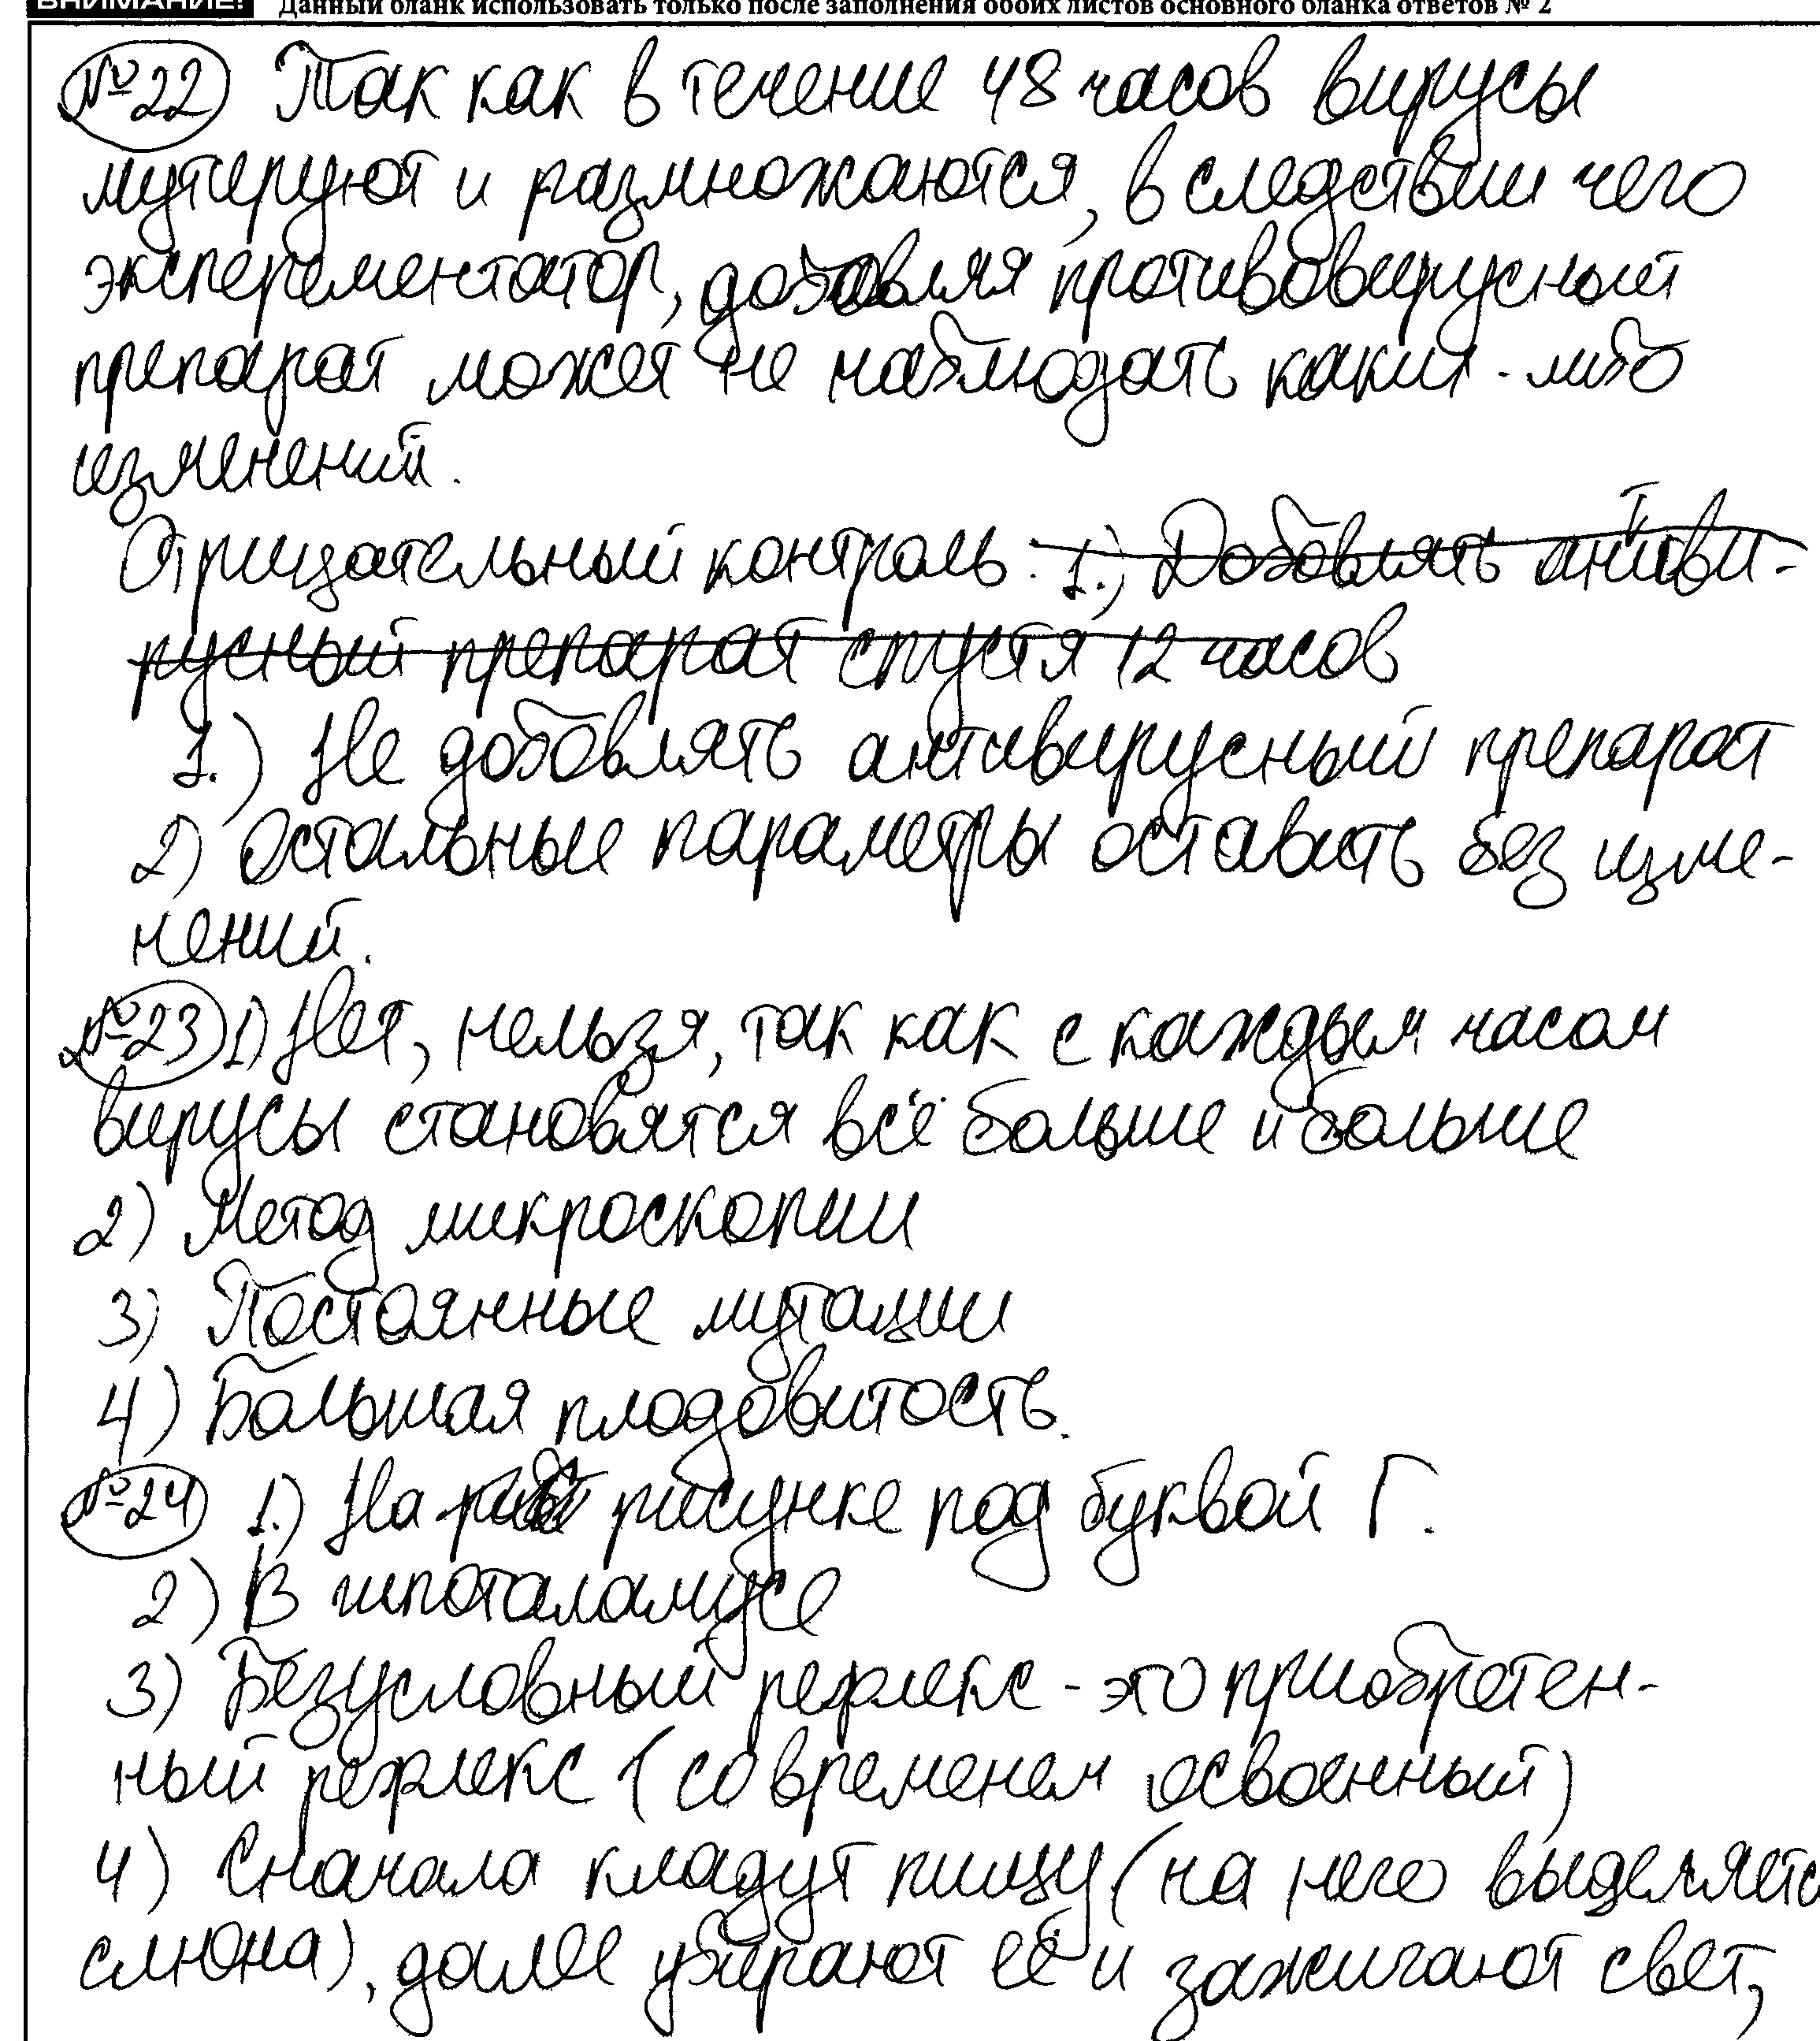 ВНИМАНИЕ! Данный бланк использовать только после заполнения обоих листов основного бланка ответов № 2
№22 Так как в течение 48 часов вирусы
мутируют и размножаются, в следствии чего
эксперементатор, добавляя противовирусный
препарат может не наблюдать каких-либо
изменений.
Отрицательный контроль: 1.) Добовлять антиви-
русный препарат спустя 12 часов
1.) Не добовлять антивирусный препарат
2) Остальные параметры оставить без изме-
нений.
№23 1) Нет, нельзя, так как с каждым часом
вирусы становятся всё больше и больше
2) Метод микроскопии
3) Постоянные мутации
4) Большая плодовитость.
№24 1.) На рисунке под буквой Г.
2) В гипоталамусе
3) Безусловный рефлекс - это приобретен-
ный рефлекс (со временем освоенный)
4) Сначала кладут пищу (на него выделяетс
слюна), далее убирают её и зажигают свет,